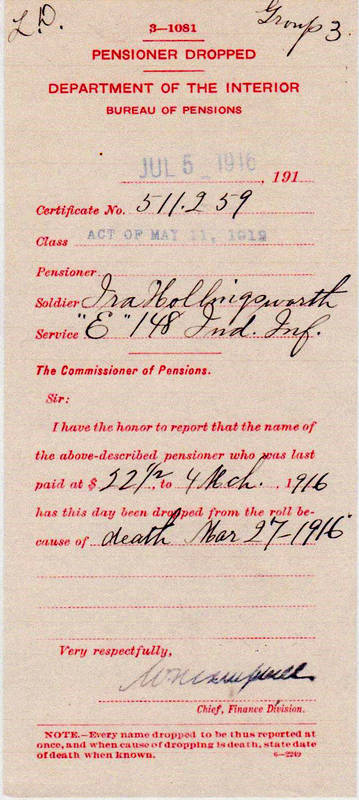 L.D.
Group 3
3—1081
PENSIONER DROPPED
DEPARTMENT OF THE INTERIOR
BUREAU OF PENSIONS
JUL 5 1916, 191
Certificate No. 511.259
Class ACT OF MAY 11, 1912
Pensioner
Soldier Ira Hollingsworth
Service "E" 148 Ind. Inf.
The Commissioner of Pensions.
Sir:
I have the honor to report that the name of
the above-described pensioner who was last
paid at $ 22 1/2, to 4 Mch. 1916
has this day been dropped from the roll be-
cause of death Mar 27-1916
Very respectfully,
Chief, Finance Division.
NOTE.—Every name dropped to be thus reported at
once, and when cause of dropping is death, state date
of death when known.
6—2249